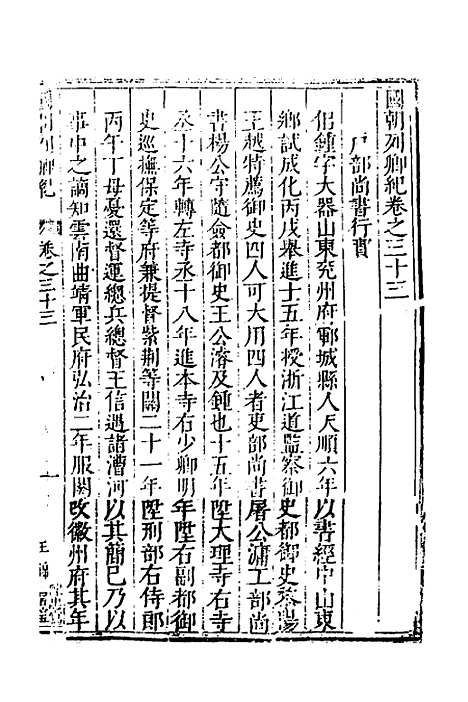 國朝列卿紀卷之三十三
戶部尚書行實
侶鍾字大器山東兖州府鄆城縣人天順六年以書經中山東
鄉試成化丙戌舉進十五年授浙江道監察御史都御史滁陽
王越特薦御史四人可大用四人者吏部尚書屠公滽工部尚
書楊公守隨僉都御史王公濬及鍾也十五年陞大理寺右寺
丞十六年轉左寺丞十八年進本寺右少卿明年陞右副都御
史巡撫保定等府兼提督紫荆等關二十一年陞刑部右侍郎
丙午丁母憂還督運總兵總督王信遇諸漕河以其簡巳乃以
事中之謫知雲南曲靖軍民府弘治二年服闋改徽州府其年
國朝列卿紀 卷之三十三